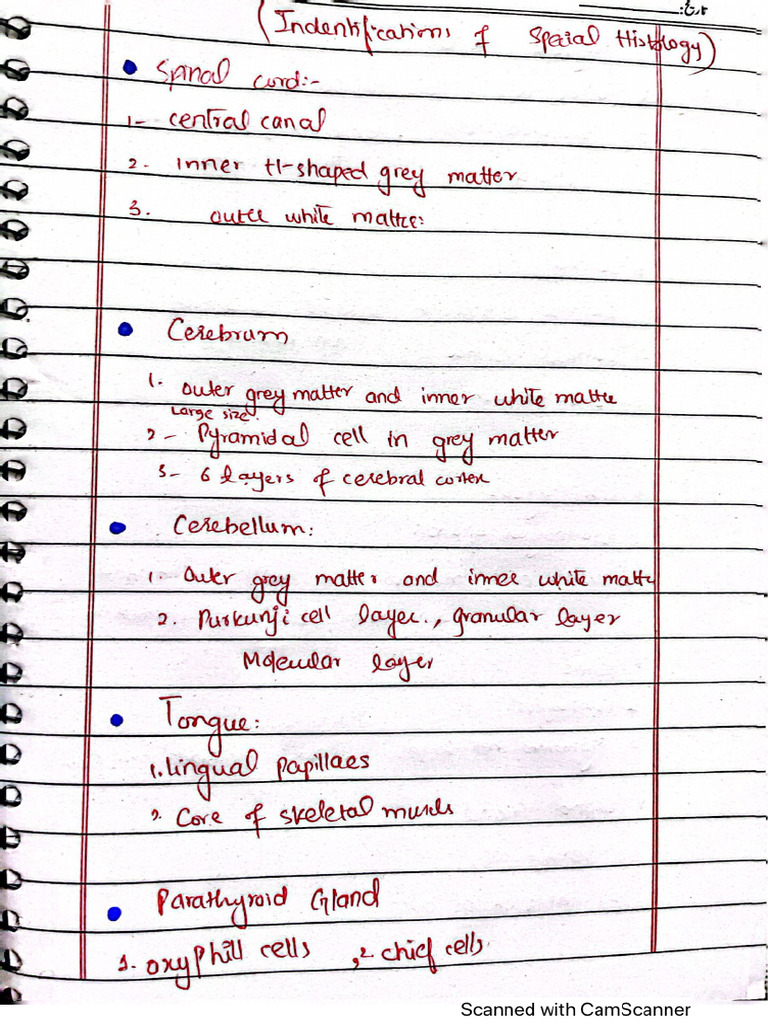 تاریخ:
(Indentifications of Speial Histology)
Spinal cord:-
1- central canal
2. inner H-shaped grey matter
3. outer white matter:
Cerebrum
1. outer grey matter and inner white matte
Large size.
2- Pyramidal cell in grey matter
3- 6 layers of cerebral cortex
Cerebellum:
1. Outer grey matter and inner white matte
2. Purkunji cell layer., granular layer
Molecular layer
Tongue:
1. lingual papillaes
2. Core of skeletal muscls
Parathyroid Gland
1. oxyphill cells ,2 chief cells.
Scanned with CamScanner